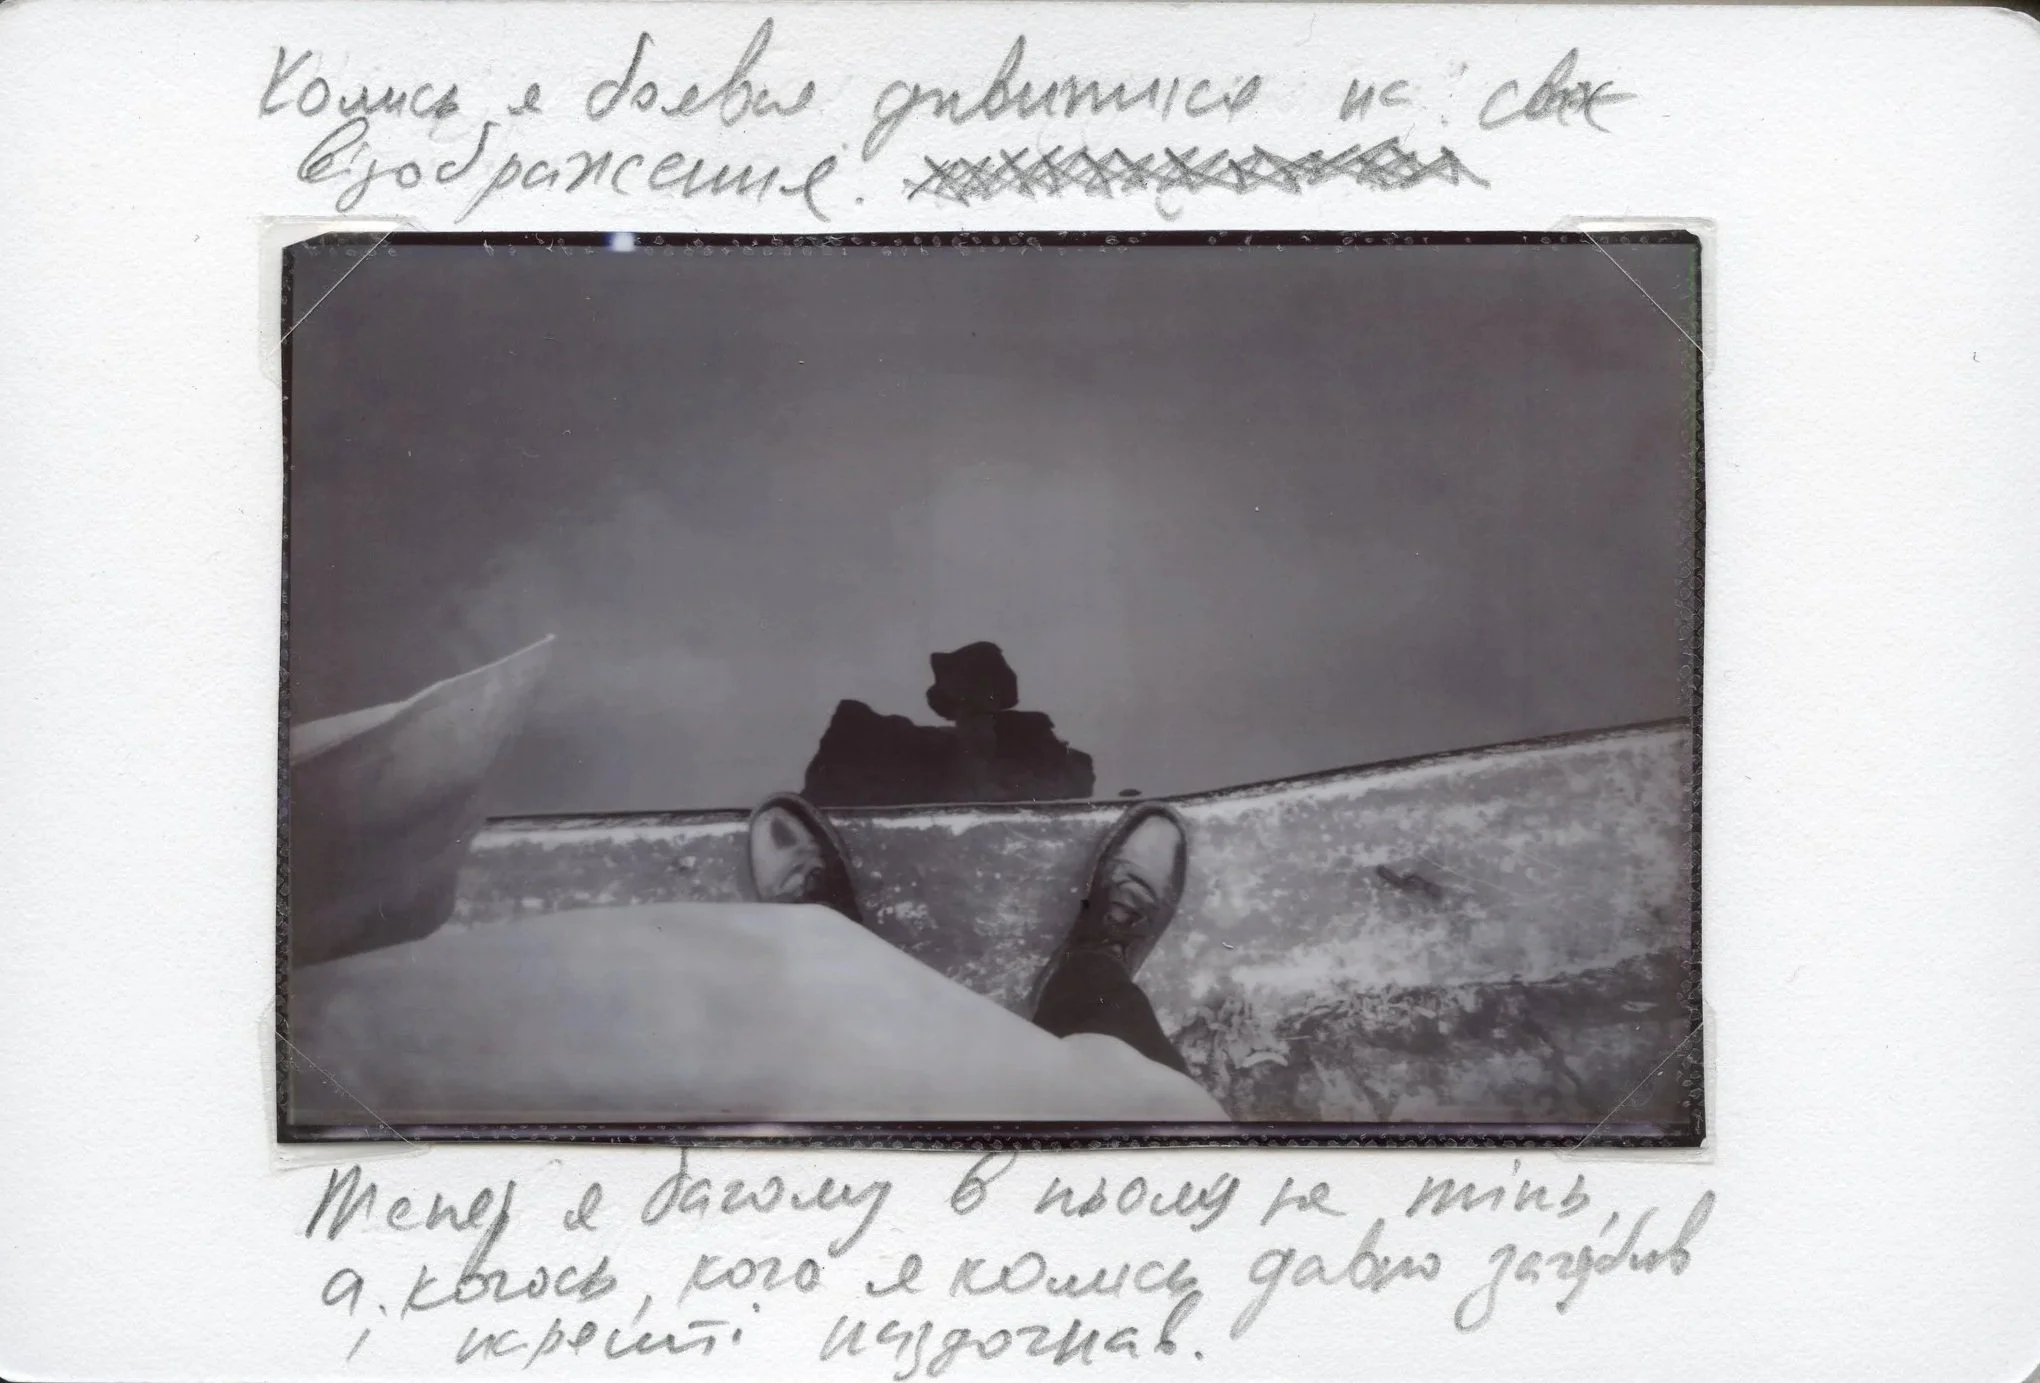 Колись я боявся дивитися на своє
відображення.
Тепер я бачому в ньому не тінь,
а когось, кого я колись давно загубив
і нарешті наздогнав.